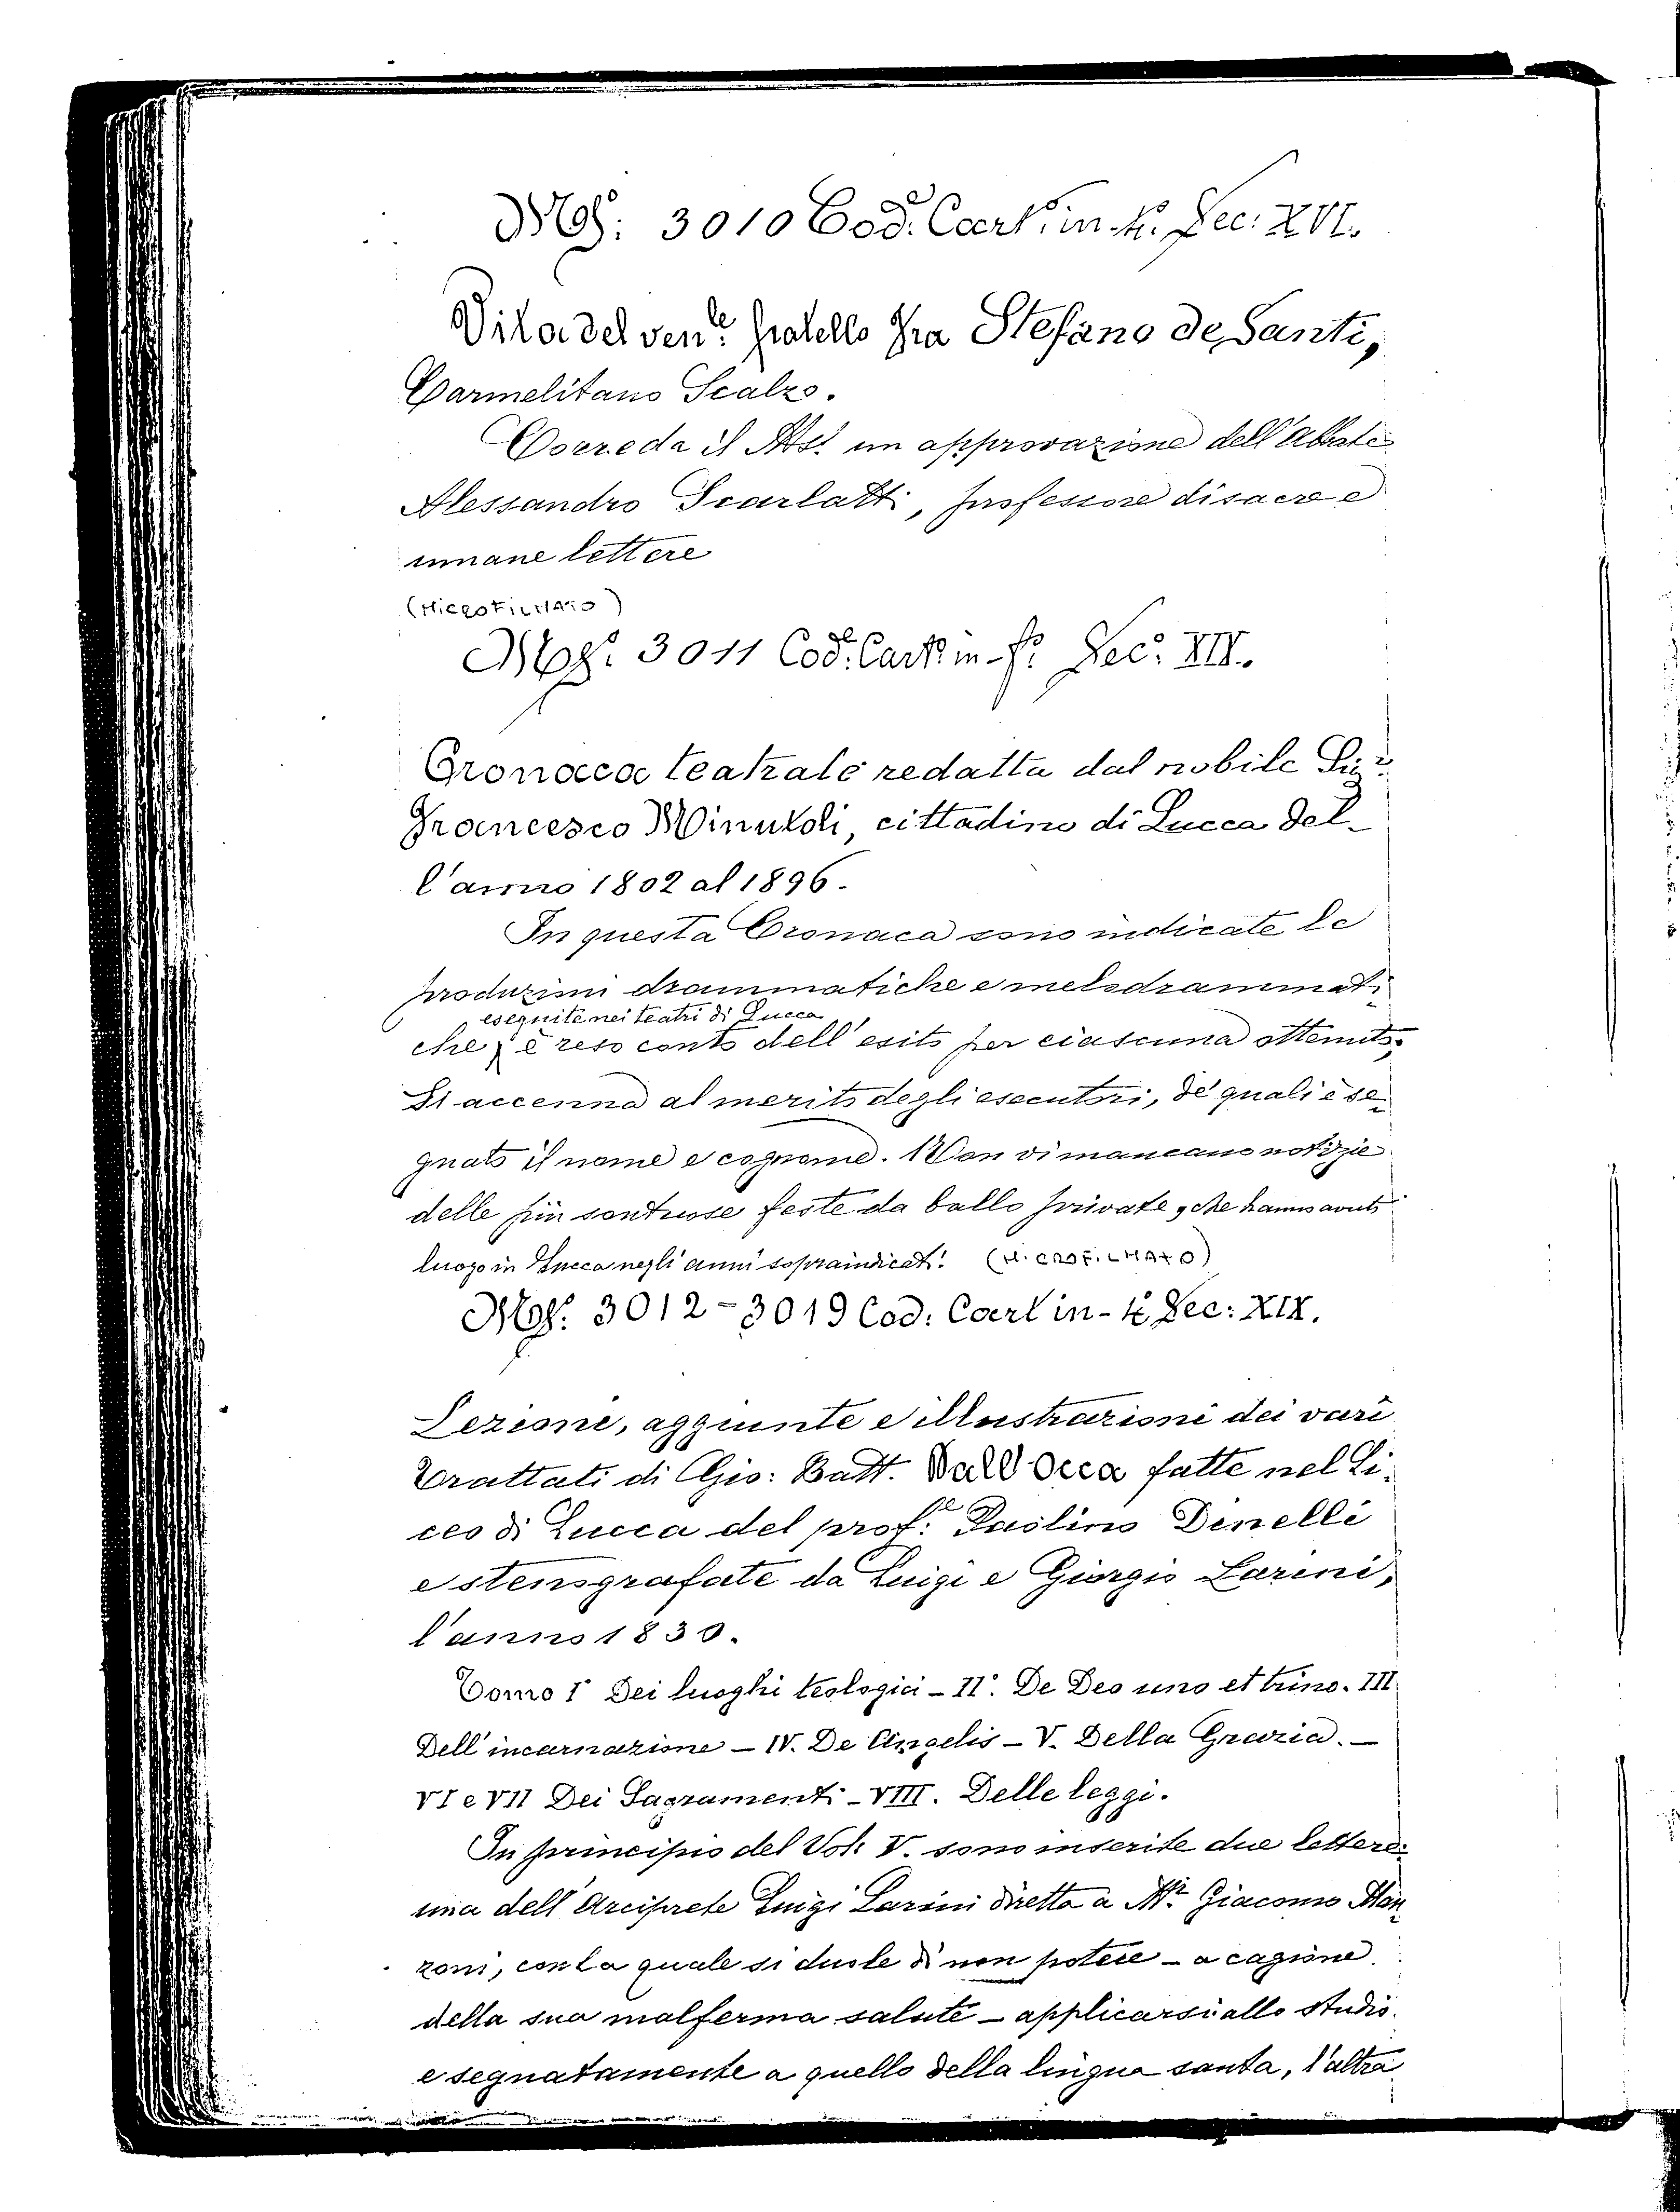 Ms: 3010 Cod. Cart. in-4. Sec: XVI.
Vita del ven.le fratello Fra Stefano de Santi,
Carmelitano Scalzo.
Correda il Ms. un approvazione dell'Abate
Alessandro Scarlatti, professore di sacre e
umane lettere
(MICROFILMATO)
Ms. 3011 Cod. Cart. in-f.º Sec: XIX.
Cronaca teatrale redatta dal nobile Sig.r
Francesco Minutoli, cittadino di Lucca del-
l'anno 1802 al 1896.
In questa Cronaca sono indicate le
produzioni drammatiche e melodrammati
eseguite nei teatri di Lucca
che, è reso conto dell'esito per ciascuna ottenuto.
Si accenna al merito degli esecutori, de' quali è se-
gnato il nome e cognome. Non vi mancano notizie
delle piu sontuose feste da ballo private, che hanno avuto
luogo in Lucca negli anni sopraindicati. (MICROFILMATO)
Ms. 3012-3019 Cod. Cart in-4. Sec: XIX.
Lezioni, aggiunte e illustrazioni dei vari
trattati di Gio: Batt. Dall'Occa fatte nel Li-
ceo di Lucca del prof.re Paolino Dinelli
e stenografate da Luigi e Giorgio Larini,
l'anno 1830.
Tomo I Dei luoghi teologici - II. De Deo uno et trino. III
Dell'incarnazione - IV. De Angelis - V. Della Grazia. -
VI e VII Dei Sagramenti - VIII. Delle leggi.
In principio del Vol. V. sono inserite due lettere:
una dell'Arciprete Luigi Larini diretta a Mr. Giacomo Man
zoni, con la quale si duole di non potere - a cagione
della sua malferma salute - applicarsi allo studio
e segnatamente a quello della lingua santa, l'altra